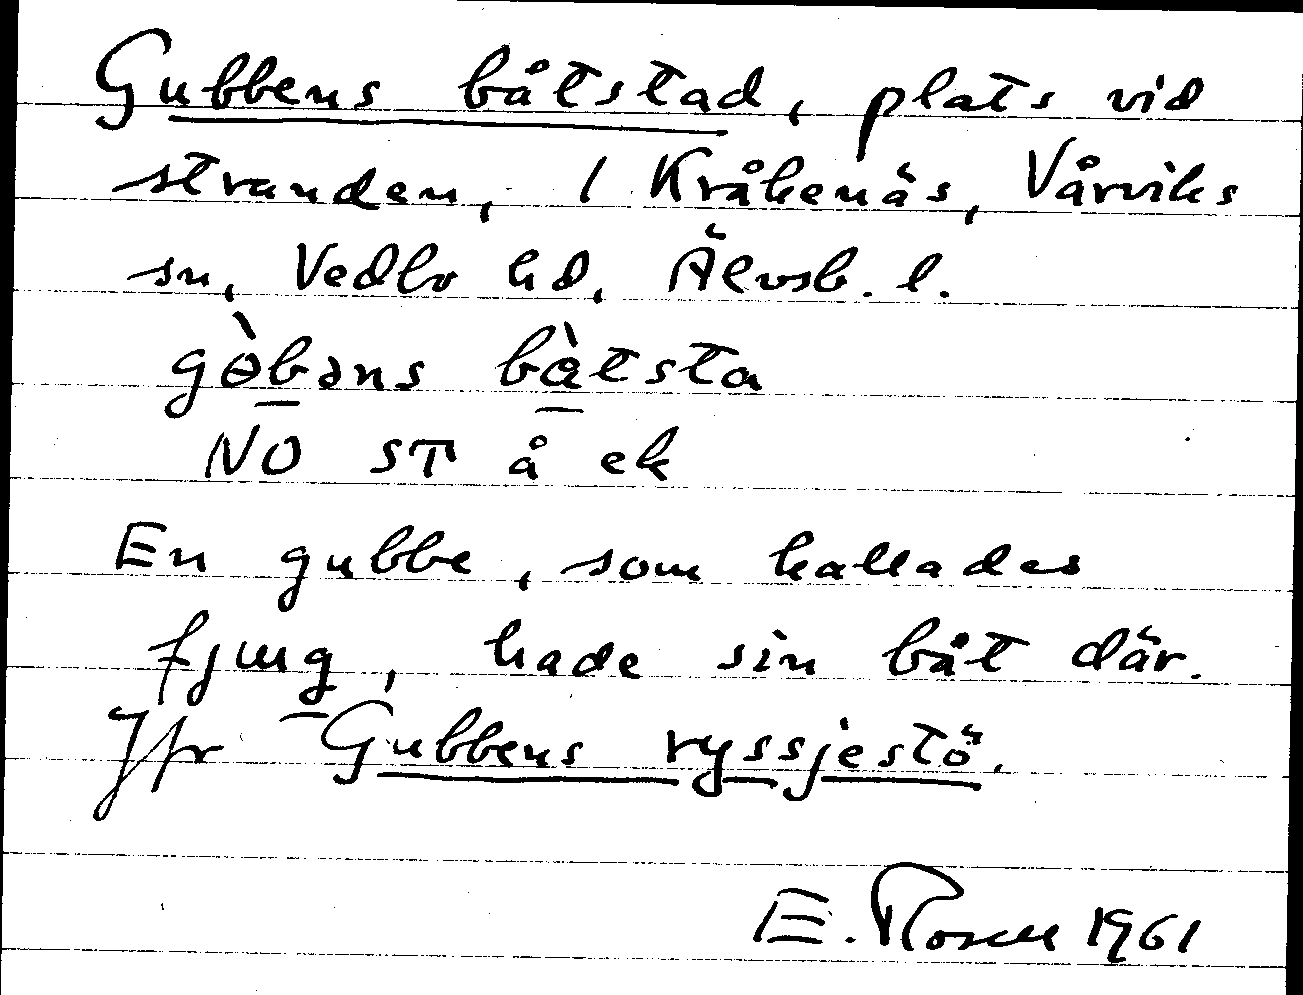 Gubbens båtstad, plats vid
stranden, i Kråkenäs, Vårviks
sn, Vedbo hd, Älvsb. l.
gòbəns bàtsta
NO ST å ek
En gubbe, som kallades
fjung, hade sin båt där.
Jfr Gubbens ryssjestö.
E. Rosell 1961